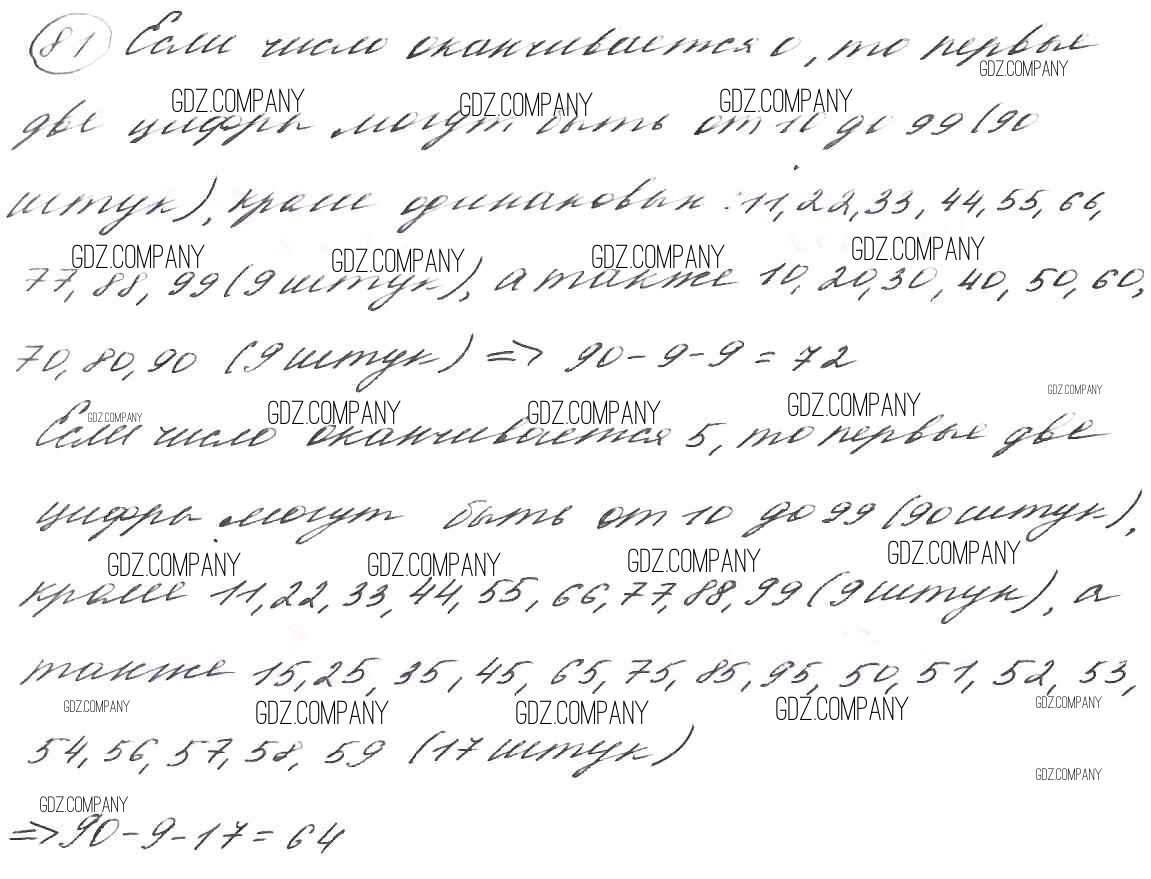 81 Если число оканчивается 0, то первые
GDZ.COMPANY
GDZ.COMPANY GDZ.COMPANY GDZ.COMPANY
две цифры могут быть от 10 до 99 (90
штук), кроме одинаковых: 11, 22, 33, 44, 55, 66,
GDZ.COMPANY GDZ.COMPANY GDZ.COMPANY GDZ.COMPANY
77, 88, 99 (9 штук), а также 10, 20, 30, 40, 50, 60,
70, 80, 90 (9 штук) => 90 - 9 - 9 = 72
GDZ.COMPANY GDZ.COMPANY GDZ.COMPANY GDZ.COMPANY GDZ.COMPANY
Если число оканчивается 5, то первые две
цифры могут быть от 10 до 99 (90 штук),
GDZ.COMPANY GDZ.COMPANY GDZ.COMPANY GDZ.COMPANY
кроме 11, 22, 33, 44, 55, 66, 77, 88, 99 (9 штук), а
также 15, 25, 35, 45, 65, 75, 85, 95, 50, 51, 52, 53,
GDZ.COMPANY GDZ.COMPANY GDZ.COMPANY GDZ.COMPANY GDZ.COMPANY
54, 56, 57, 58, 59 (17 штук)
GDZ.COMPANY
GDZ.COMPANY
=> 90 - 9 - 17 = 64